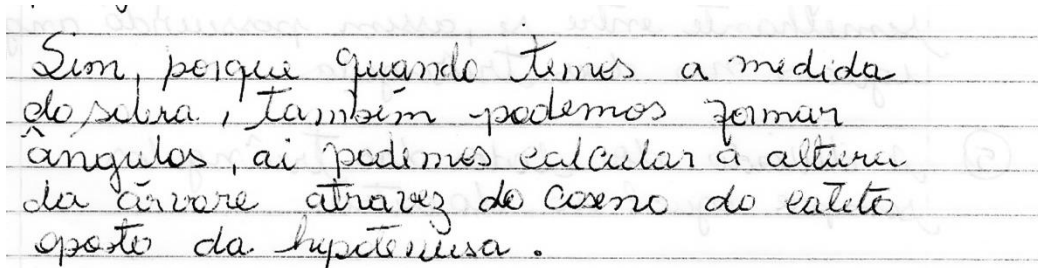 Sim, porque quando temos a medida
do sobra, também podemos formar
ângulos, ai podemos calcular a altura
da árvore atravez do coseno do cateto
oposto da hipotenusa.